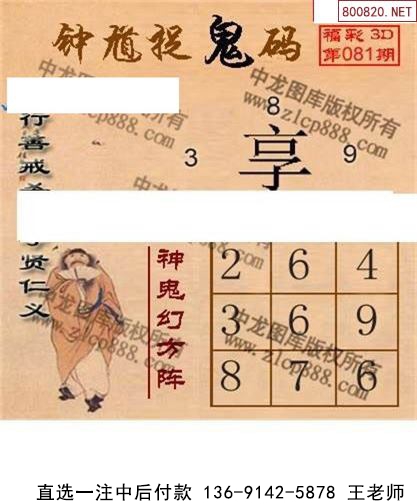 800820.NET
钟馗捉鬼码
福彩3D
第081期
8
3 享 9
行善戒
贤仁义
神鬼幻方阵
2 6 4
3 6 9
8 7 6
中龙图库版权所有
www.zlcp888.com
中龙图库版权所有
www.zlcp888.com
直选一注中后付款 136-9142-5878 王老师